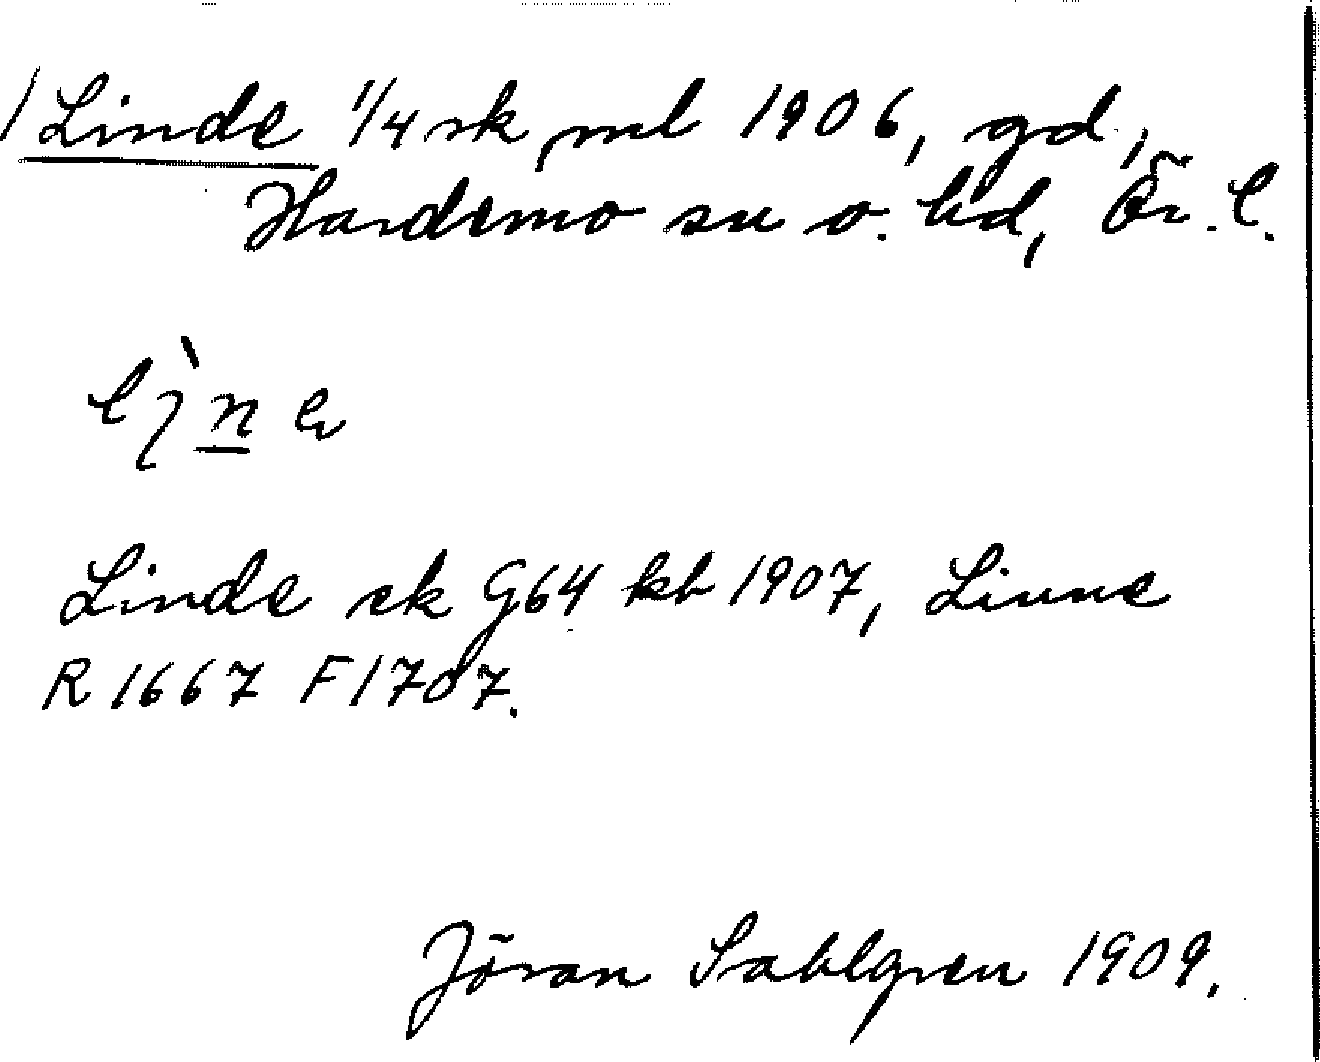 1 Linde 1/4 sk ml 1906, gd,
Hardemo sn o. hd, Ör. l.
Linde sk G64 kb 1907, Linne
R 1667 F 1707.
Jöran Sahlgren 1909.